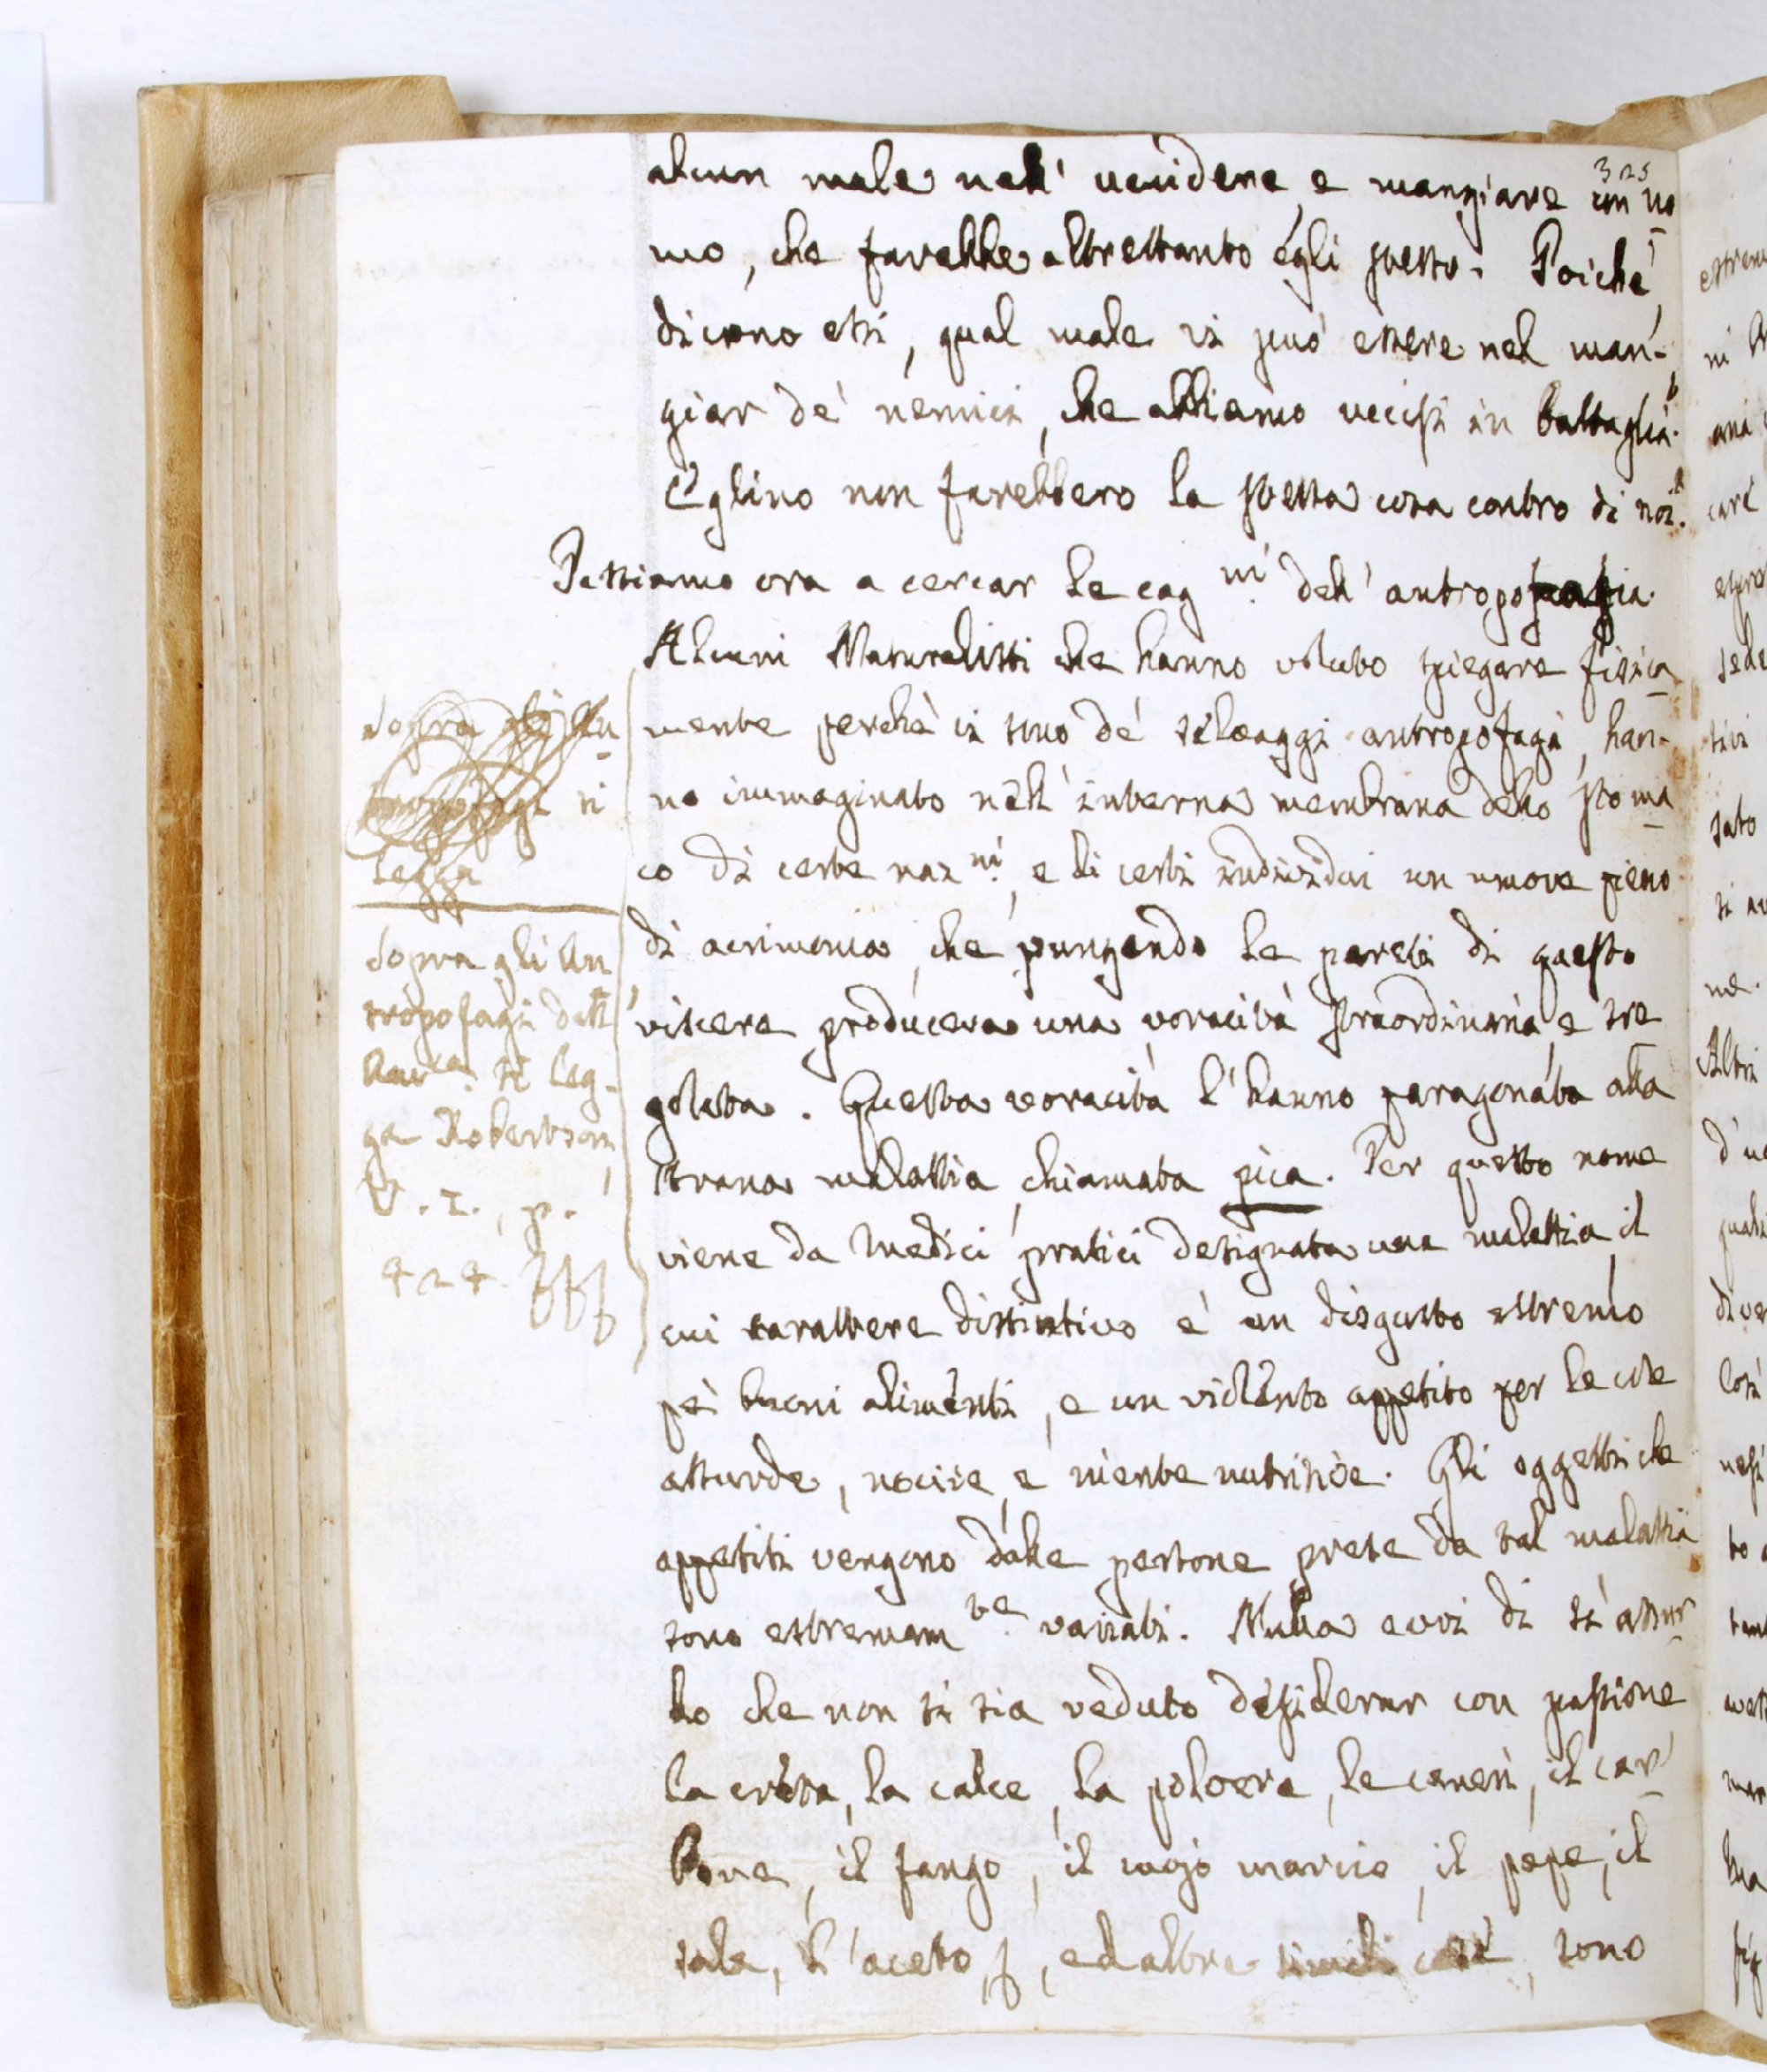 325
alcun male nell' uccidere, e mangiare un uo
mo, che farebbe altrettanto egli stesso. Poiché,
dicono essi, qual male vi può essere nel man-
giar de' nemici, che abbiamo uccisi in battaglia?
Eglino non farebbero la stessa cosa contro di noi?
Passiamo ora a cercar le cag.ni dell' antropofagia.
Alcuni Naturalisti che hanno voluto spiegare fisica
mente perchè vi sono de' selvaggi antropofagi, han-
no immaginato nell' interna membrana dello stoma
co di certe naz.ni, e di certi individui un umore pieno
di acrimonia, che pungendo le pareti di questo
viscere produceva una voracità straordinaria, e sre
golata. Questa voracità l' hanno paragonata alla
strana malattia chiamata pica. Per questo nome
viene da Medici pratici designata una malattia, il
cui carattere distintivo è un disgusto estremo
pe' buoni alimenti, e un violento appetito per le cose
assurde, nocive, e niente nutritive. Gli oggetti che
appetiti vengono dalle persone prese da tal malattia
sono estremam.te variati. Nulla evvi di sì assur
do che non si sia veduto desiderar con passione
la creta, la calce, la polvere, le ceneri, il car
bone, il fango, il cuojo marcio, il pepe, il
sale, l' aceto, ed altre simili cose, sono
Sopra gli An
tropofagi si
legga
Sopra gli An
tropofagi dell'
Am.ca si leg-
ga Robertson,
V. I., p.
424.